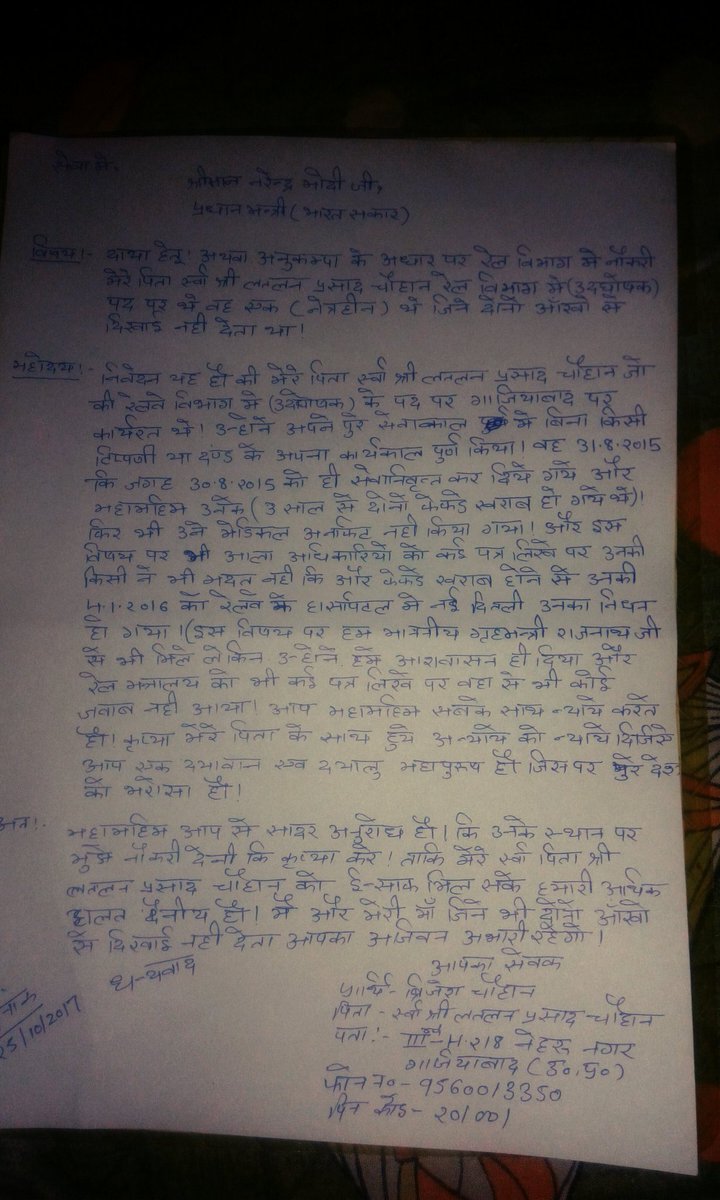 सेवा मे.
श्रीमान नरेन्द्र मोदी जी,
प्रधानमन्त्री (भारत सरकार)
विषय!- दाया हेतू! अथवा अनुकम्पा के अधार पर रेल विभाग मे नौकरी
मेरे पिता स्र्वा श्री लललन प्रसाद चौहान रेल विभाग मे (उदघोषक)
पद पर थे वह एक (नेत्रहीन) थे जिने दोनो आँखो से
दिखाई नही देता था!
महोदय!- निवेदन यह है की मेरे पिता र्स्वा श्री लललन प्रसाद चौहान जो
की रेलवे विभाग मे (उदघोषक) के पद पर गाजियाबाद पर
कार्यरत थे! उन्होने अपने पुरे सेवाकाल मे बिना किसी
टिप्पणी या दण्ड के अपना कार्यकाल पुर्ण किया। वह 31.8.2015
कि जगह 30.8.2015 को ही सेवानिवृत्त कर दिये गये और
महामहिम उनके (3 साल से दोनो फेफडे खराब हो गये थे)।
फिर भी उने मेडिकल अनफिट नही किया गया! और इस
विषय पर भी आला अधिकारियो को कई पत्र लिखे पर उनकी
किसी ने भी मदत नही कि और फेफडे खराब होने से उनकी
4.1.2016 को रेलवे के हास्पिटल मे नई दिल्ली उनका निधन
हो गया। (इस विषय पर हम माननीय गृहमन्त्री राजनाथ जी
से भी मिले लेकिन उन्होने हमे आशवासन ही दिया और
रेल मन्त्रालय को भी कई पत्र लिखे पर वहा से भी कोई
जवाब नही आया! आप महामहिम सबके साथ न्याये करते
है। कृप्या मेरे पिता के साथ हुये अन्याये को न्याये दिजिये
आप एक दयावान एव दयालु महापुरूष है जिस पर पुरे देश
को भरोसा है!
अत!- महामहिम आप से सादर अनुरोध है। कि उनके स्थान पर
मुझे नौकरी देनी कि कृप्या करे! ताकि मेरे र्स्वा पिता श्री
लललन प्रसाद चौहान को इन्साफ मिल सके हमारी आर्थिक
हालत दैनीय है। मै और मेरी माँ जिने भी दोनो आँखो
से दिखाई नही देता आपका अजिवन अभारी रहेगे।
धन्यवाद
आपका सेवक
प्रार्थि- ब्रिजेश चौहान
पिता - र्स्वा श्री लललन प्रसाद चौहान
पता!- III H.218 नेहरू नगर
गाजियाबाद (उ.प्र०)
फोन न०- 9560013350
पिन कोड- 201001
25/10/2017